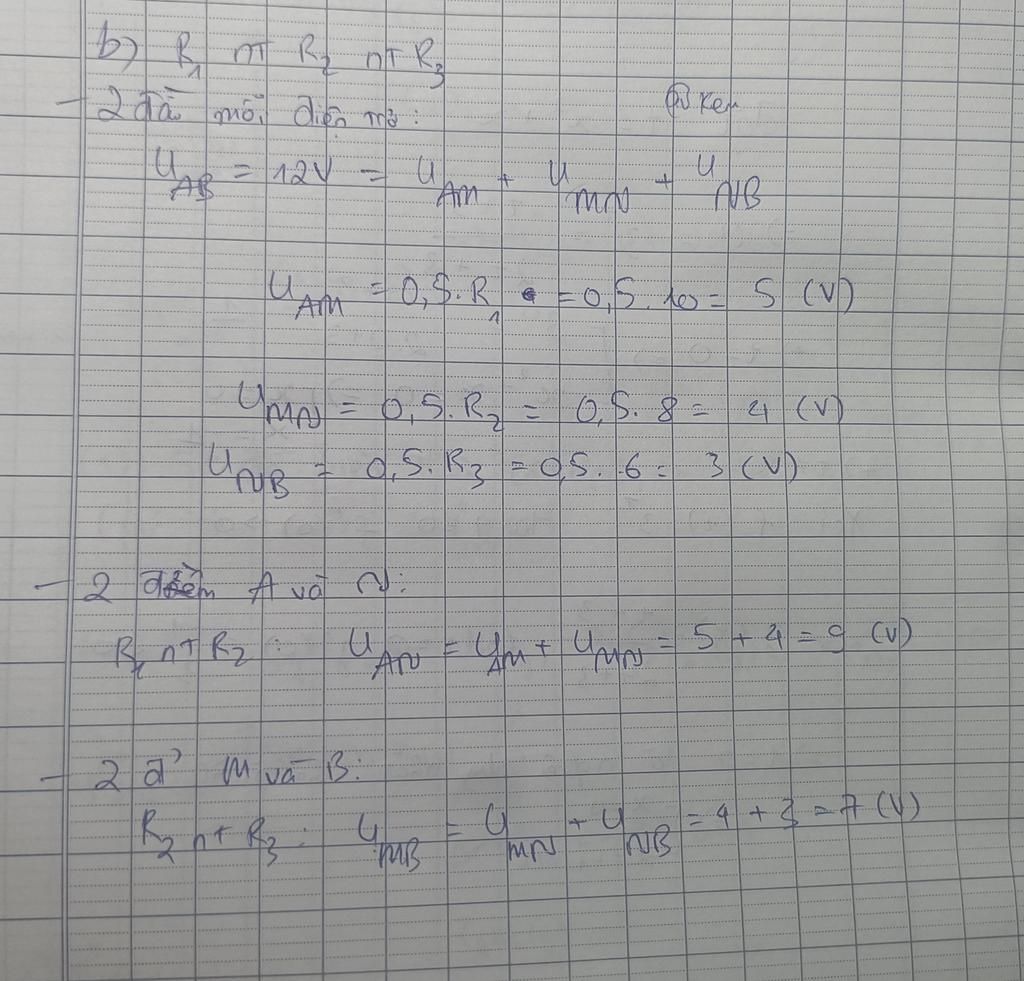 b) R₁ nT R₂ nT R₃
- 2 đầ mỗi điện trở:
U_AB = 12V = U_AM + U_MN + U_NB
U_AM = 0,5.R₁ = 0,5.10 = 5 (V)
U_MN = 0,5.R₂ = 0,5.8 = 4 (V)
U_NB = 0,5.R₃ = 0,5.6 = 3 (V)
- 2 điểm A và N:
R₁ nT R₂: U_AN = U_AM + U_MN = 5 + 4 = 9 (V)
- 2 đ' M và B:
R₂ nt R₃: U_MB = U_MN + U_NB = 4 + 3 = 7 (V)